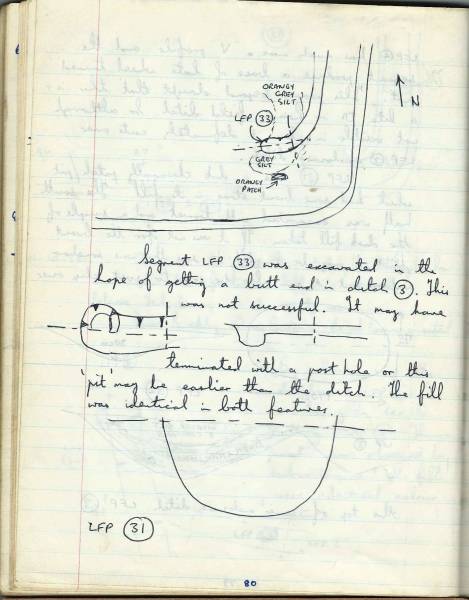 ORANGY
GREY
SILT
N
LFP 33
GREY
SILT
ORANGY
PATCH
Segment LFP 33 was excavated in the
hope of getting a butt end in ditch 3. This
was not successful. It may have
terminated with a post hole or this
'pit' may be earlier than the ditch. The fill
was identical in both features.
LFP 31
80